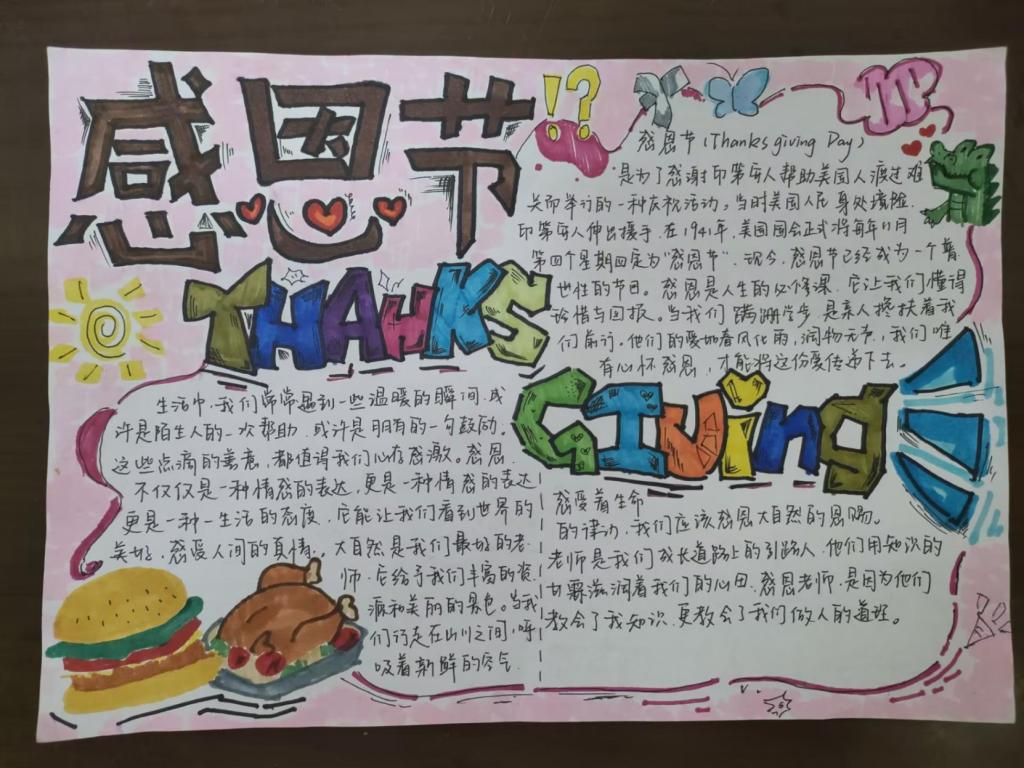 感恩节
!?
THANKS
GIVing
感恩节(Thanks giving Day)
是为了感谢印第安人帮助美国人渡过难
关而举行的一种庆祝活动。当时美国人民身处
印第安人伸出援手,在1941年,美国国会正式将每年11月
第四个星期四定为“感恩节”.现今,感恩节已经成为一个普
世性的节日。感恩是人生的必修课,它让我们懂得
珍惜与回报。当我们蹒跚学步,是亲人搀扶着我
们前行,他们的爱如春风化雨,润物无声,我们唯
有心怀感恩,才能将这份爱传递下去。
生活中,我们常常遇到一些温暖的瞬间,或
许是陌生人的一次帮助,或许是朋友的一句鼓励,
这些点滴的善意,都值得我们心存感激。感恩
不仅仅是一种情感的表达,更是一种情感的表达
更是一种一生活的态度,它能让我们看到世界的
美好,感受人间的真情。大自然是我们最好的老
师,它给予我们丰富的资
源和美丽的景色。当我
们行走在山川之间,呼
吸着新鲜的空气
感受着生命
的律动,我们应该感恩大自然的恩赐。
老师是我们成长道路上的引路人,他们用知识的
甘霖滋润着我们的心田,感恩老师,是因为他们
教会了我知识,更教会了我们做人的道理。